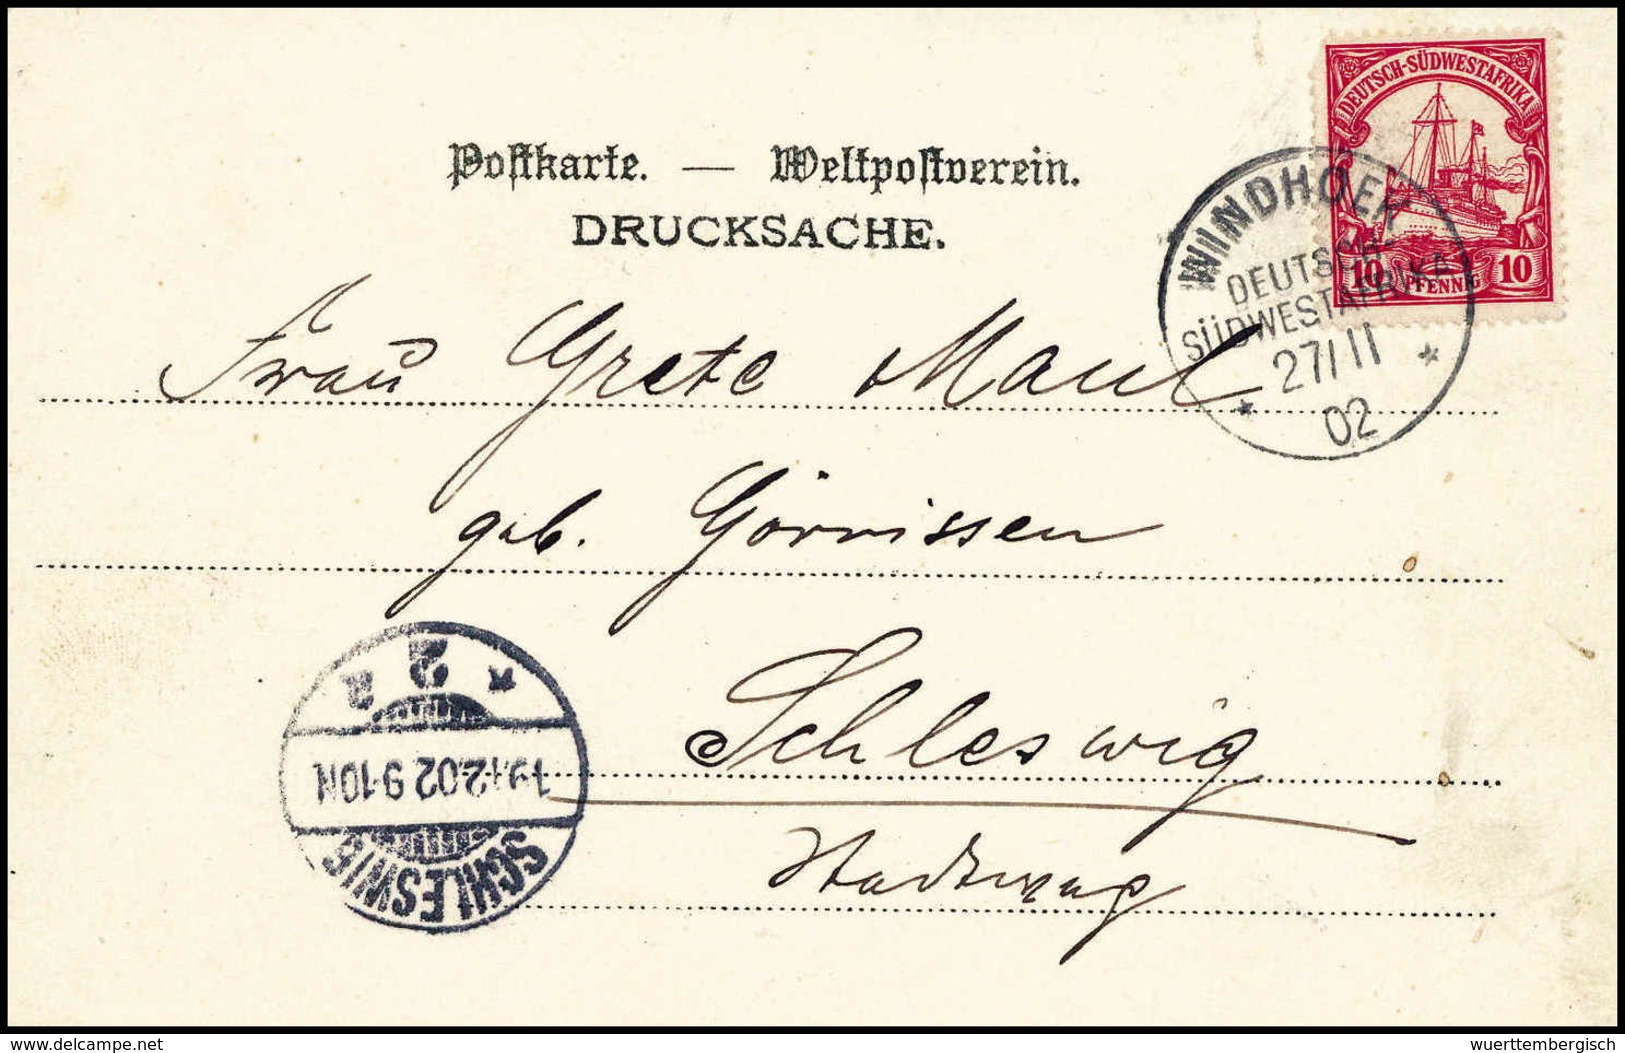 DEUTSCH-SÜDWESTAFRIKA
10 PFENNIG 10
Postkarte. — Weltpostverein.
DRUCKSACHE.
WINDHOEK
DEUTSCH-
SÜDWESTAFRIKA
27/11
02
Frau Grete Maul
geb. Görrissen
Schleswig
Stadtweg
SCHLESWIG
19.12.02 9-10N
* 2 a
delcampe.net
wuerttembergisch